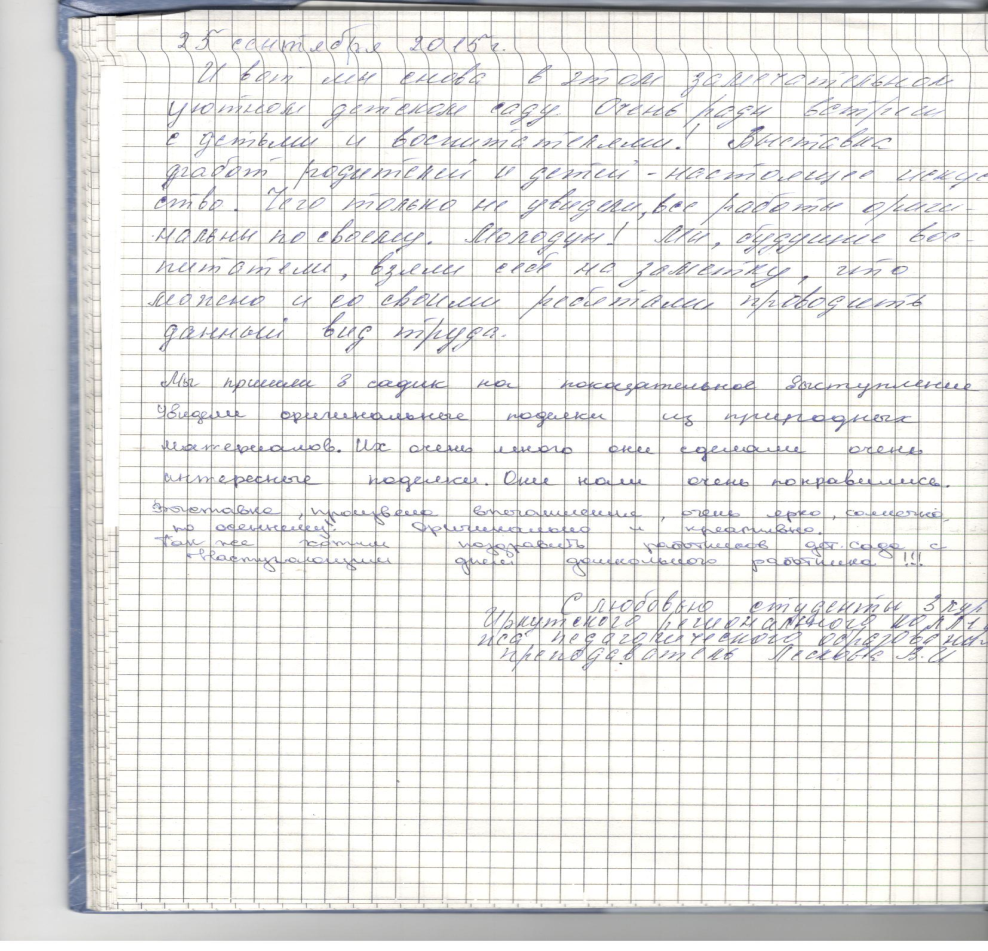 25 сентября 2015г.
И вот мы снова в этом замечательном
уютном детском саду. Очень рады встречи
с детьми и воспитателями! Выставка
работ родителей и детей - настоящее искус
ство. Чего только не увидели, все работы ориги-
нальны по своему. Молодцы! Мы, будущие вос-
питатели, взяли себе на заметку, что
можно и со своими ребятами проводить
данный вид труда.
Мы пришли в садик на показательное выступление
увидели оригинальные поделки из природных
материалов. Их очень много они сделали очень
интересные поделки. Они нам очень понравились.
Выставка, произвела впечатление, очень ярко,
по осеннему. Оригинально и креативно.
Так же хотим поздравить работников дет. сада с
Наступающим днем дошкольного работника !!!
С любовью студенты 3 кур
Иркутского регионального колле
педагогического образован
преподаватель В.И